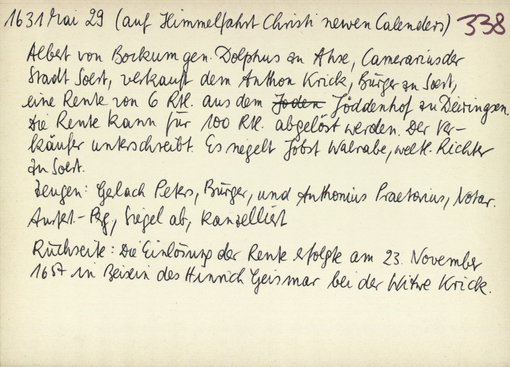 1631 Mai 29 (auf Himmelfahrt Christi newen Calenders) 338
Albert von Bockum gen. Dolphus zu Ahse, Camerarius der
Stadt Soest, verkauft dem Anthon Krick, Bürger zu Soest,
eine Rente von 6 Rtl. aus dem Joden Jöddenhof zu Deiringsen.
Die Rente kann für 100 Rtl. abgelöst werden. Der Ver-
käufer unterschreibt. Es siegelt Jobst Walrabe, weltl. Richter
zu Soest.
Zeugen: Gerlach Peters, Bürger, und Anthonius Praetorius, Notar.
Ausf.-Pg, Siegel ab, kanzelliert
Rückseite: Die Einlösung der Rente erfolgte am 23. November
1657 in Beisein des Hinrich Geismar bei der Witwe Krick.